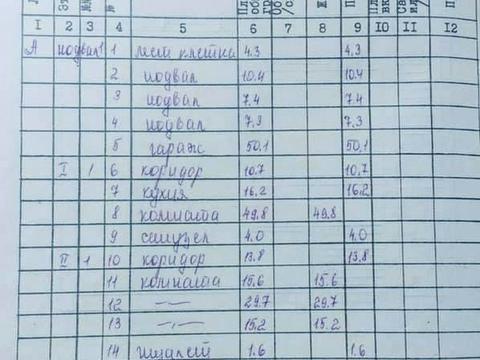 I 2 3 4 5 6 7 8 9 IO II I2
А подвал 1 1 лест клетка 4.3 4.3
2 подвал 10.4 10.4
3 подвал 7.4 7.4
4 подвал 7.3 7.3
5 гараж 50,1 50,1
I 1 6 коридор 10,7 10,7
7 кухня 16,2 16.2
8 комната 49,8 49,8
9 санузел 4.0 4.0
II 1 10 коридор 13.8 13,8
11 комната 15,6 15.6
12 —〃— 29.7 29.7
13 —〃— 15.2 15.2
14 туалет 1.6 1.6